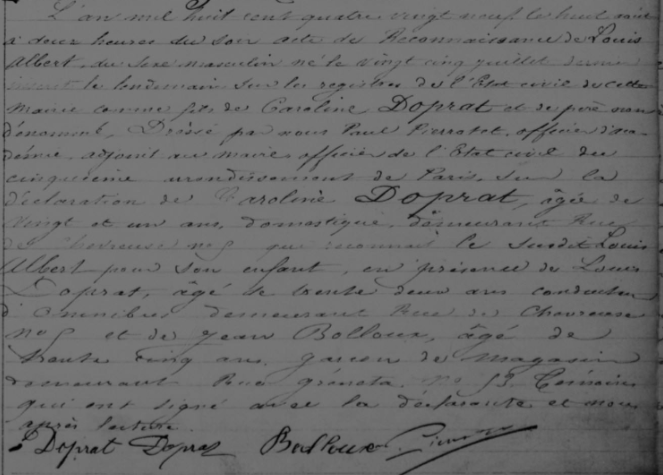 L'an mil huit cent quatre vingt neuf le huit août
à deux heures du soir acte de Reconnaissance de Louis
Albert, du sexe masculin né le vingt cinq juillet dernier
inscrit le lendemain sur les registres de l'Etat civil de cette
Mairie comme fils de Caroline Doprat et de père non
dénommé, Dressé par nous Paul officier d'aca-
démie, adjoint au maire officier de l'Etat civil du
cinquième arrondissement de Paris, sur la
déclaration de Caroline Doprat, âgée de
vingt et un ans, domestique, demeurant Rue
de Chevreuse no 5 qui reconnait le susdit Louis
Albert pour son enfant, en présence de Louis
Doprat, âgé de trente deux ans conducteur
d'omnibus demeurant Rue de Chevreuse
no 5 et de Jean Bolloux, âgé de
trente cinq ans, garçon de magasin
demeurant Rue Grénéta, no 53 Témoins
qui ont signé avec la déclarante et nous
après lecture.
Doprat Doprat Bolloux